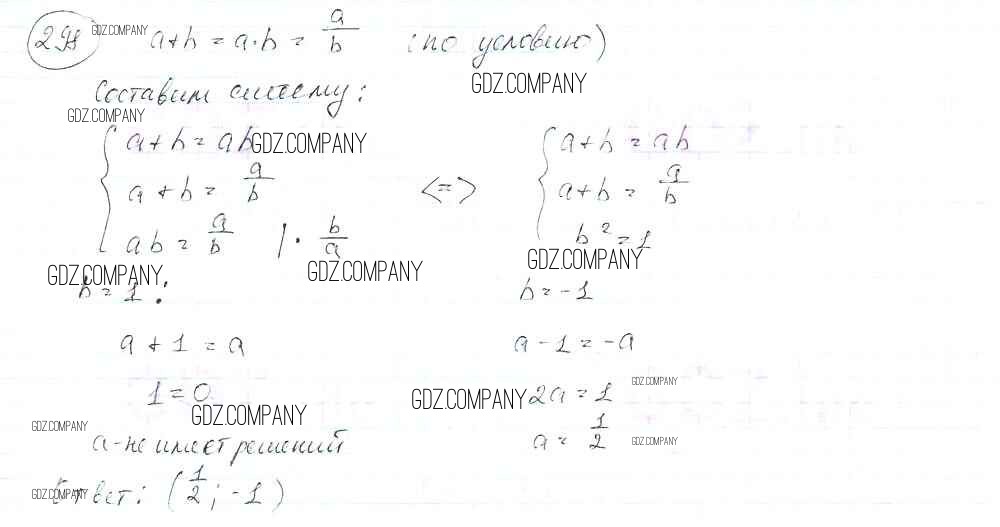 298 GDZ.COMPANY a+b = a·b = a/b (по условию)
GDZ.COMPANY
Составим систему:
GDZ.COMPANY
a+b = ab GDZ.COMPANY a+b = ab
a+b = a/b <=> a+b = a/b
ab = a/b | · b/a b² = 1
GDZ.COMPANY GDZ.COMPANY GDZ.COMPANY
b = 1: b = -1
a + 1 = a a - 1 = -a
1 = 0 GDZ.COMPANY 2a = 1 GDZ.COMPANY
GDZ.COMPANY
GDZ.COMPANY a = 1/2 GDZ.COMPANY
a - не имеет решений
GDZ.COMPANY Ответ: (1/2; -1)